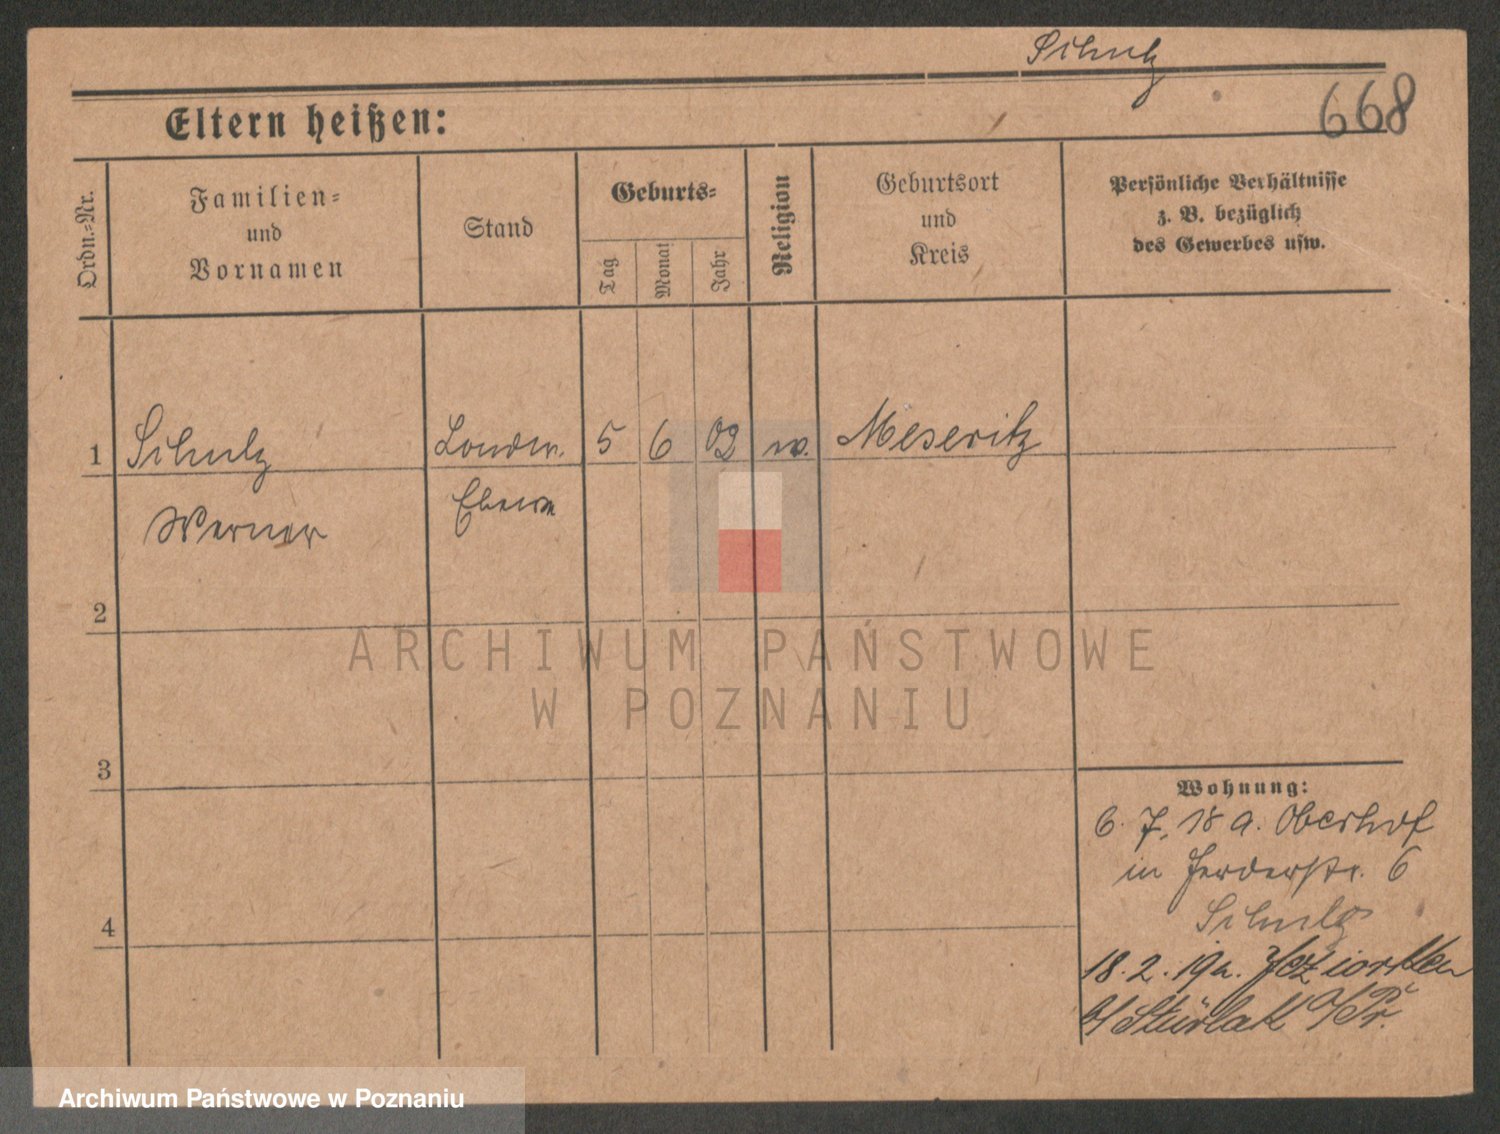 Schulz
668
Eltern heißen:
Ordn.=Nr.
Familien=
und
Vornamen
Stand
Geburts=
Tag
Monat
Jahr
Religion
Geburtsort
und
Kreis
Persönliche Verhältnisse
z. B. bezüglich
des Gewerbes usw.
1 Schulz 5 6 02 Meseritz
Werner
2
3
4
Wohnung:
6. 7. 18 a. Oberhof
in 6
Schulz
18. 2. 19 a. Jeziorken
b/ Stürlak O/Pr.
ARCHIWUM PAŃSTWOWE
W POZNANIU
Archiwum Państwowe w Poznaniu